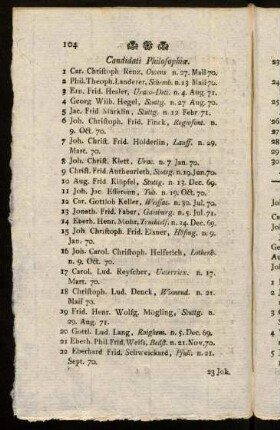 104
Candidati Philosophiæ.
1 Car. Christoph Renz, n. 27. Maii 70.
2 Phil. Theoph. Landerer, n. 13 Maii 70.
3 Ern. Frid. Hesler, n. 4. Aug. 71.
4 Georg Wilh. Hegel, Stuttg. n. 27 Aug. 70.
5 Jac. Frid Märklin, Stuttg. n. 12 Febr. 71.
6 Joh. Christoph. Frid. Finck, n.
9. Oct. 70.
7 Joh. Christ. Frid. Hölderlin, Lauff. n. 29.
Mart. 70.
8 Joh. Christ. Klett, Urac. n. 7. Jan. 70.
9 Christ. Frid Authenrieth, Stuttg. n. 19. Jun. 70.
10 Aug. Frid. Klüpfel, Stuttg. n. 13. Dec. 69.
11 Joh. Jac. Efferenn, Tub. n. 19. Oct. 70.
12 Car. Gottlob Keller, n. 30. Jul. 70.
13 Jonath. Frid. Faber, n. 5. Jul. 71.
14 Eberh. Henr. Mohr, n. 14. Dec. 69.
15 Joh Christoph. Frid. Elsner, n. 9.
Jan. 70.
16 Joh. Carol. Christoph. Helferich,
n. 9. Oct. 70.
17 Carol. Lud. Reyscher, n. 17.
Mart. 70.
18 Christoph. Lud. Denck, Winnend. n. 21.
Maii 70
19 Frid. Henr. Wolfg. Mögling, Stuttg. n.
29. Aug. 71.
20 Gottl. Lud. Lang, n. 5. Dec. 69.
21 Eberh. Phil. Frid. n. 21. Nov. 70.
22 Eberhard Frid. Schweickard, Pfull. n. 21.
Sept. 70.
23 Joh.